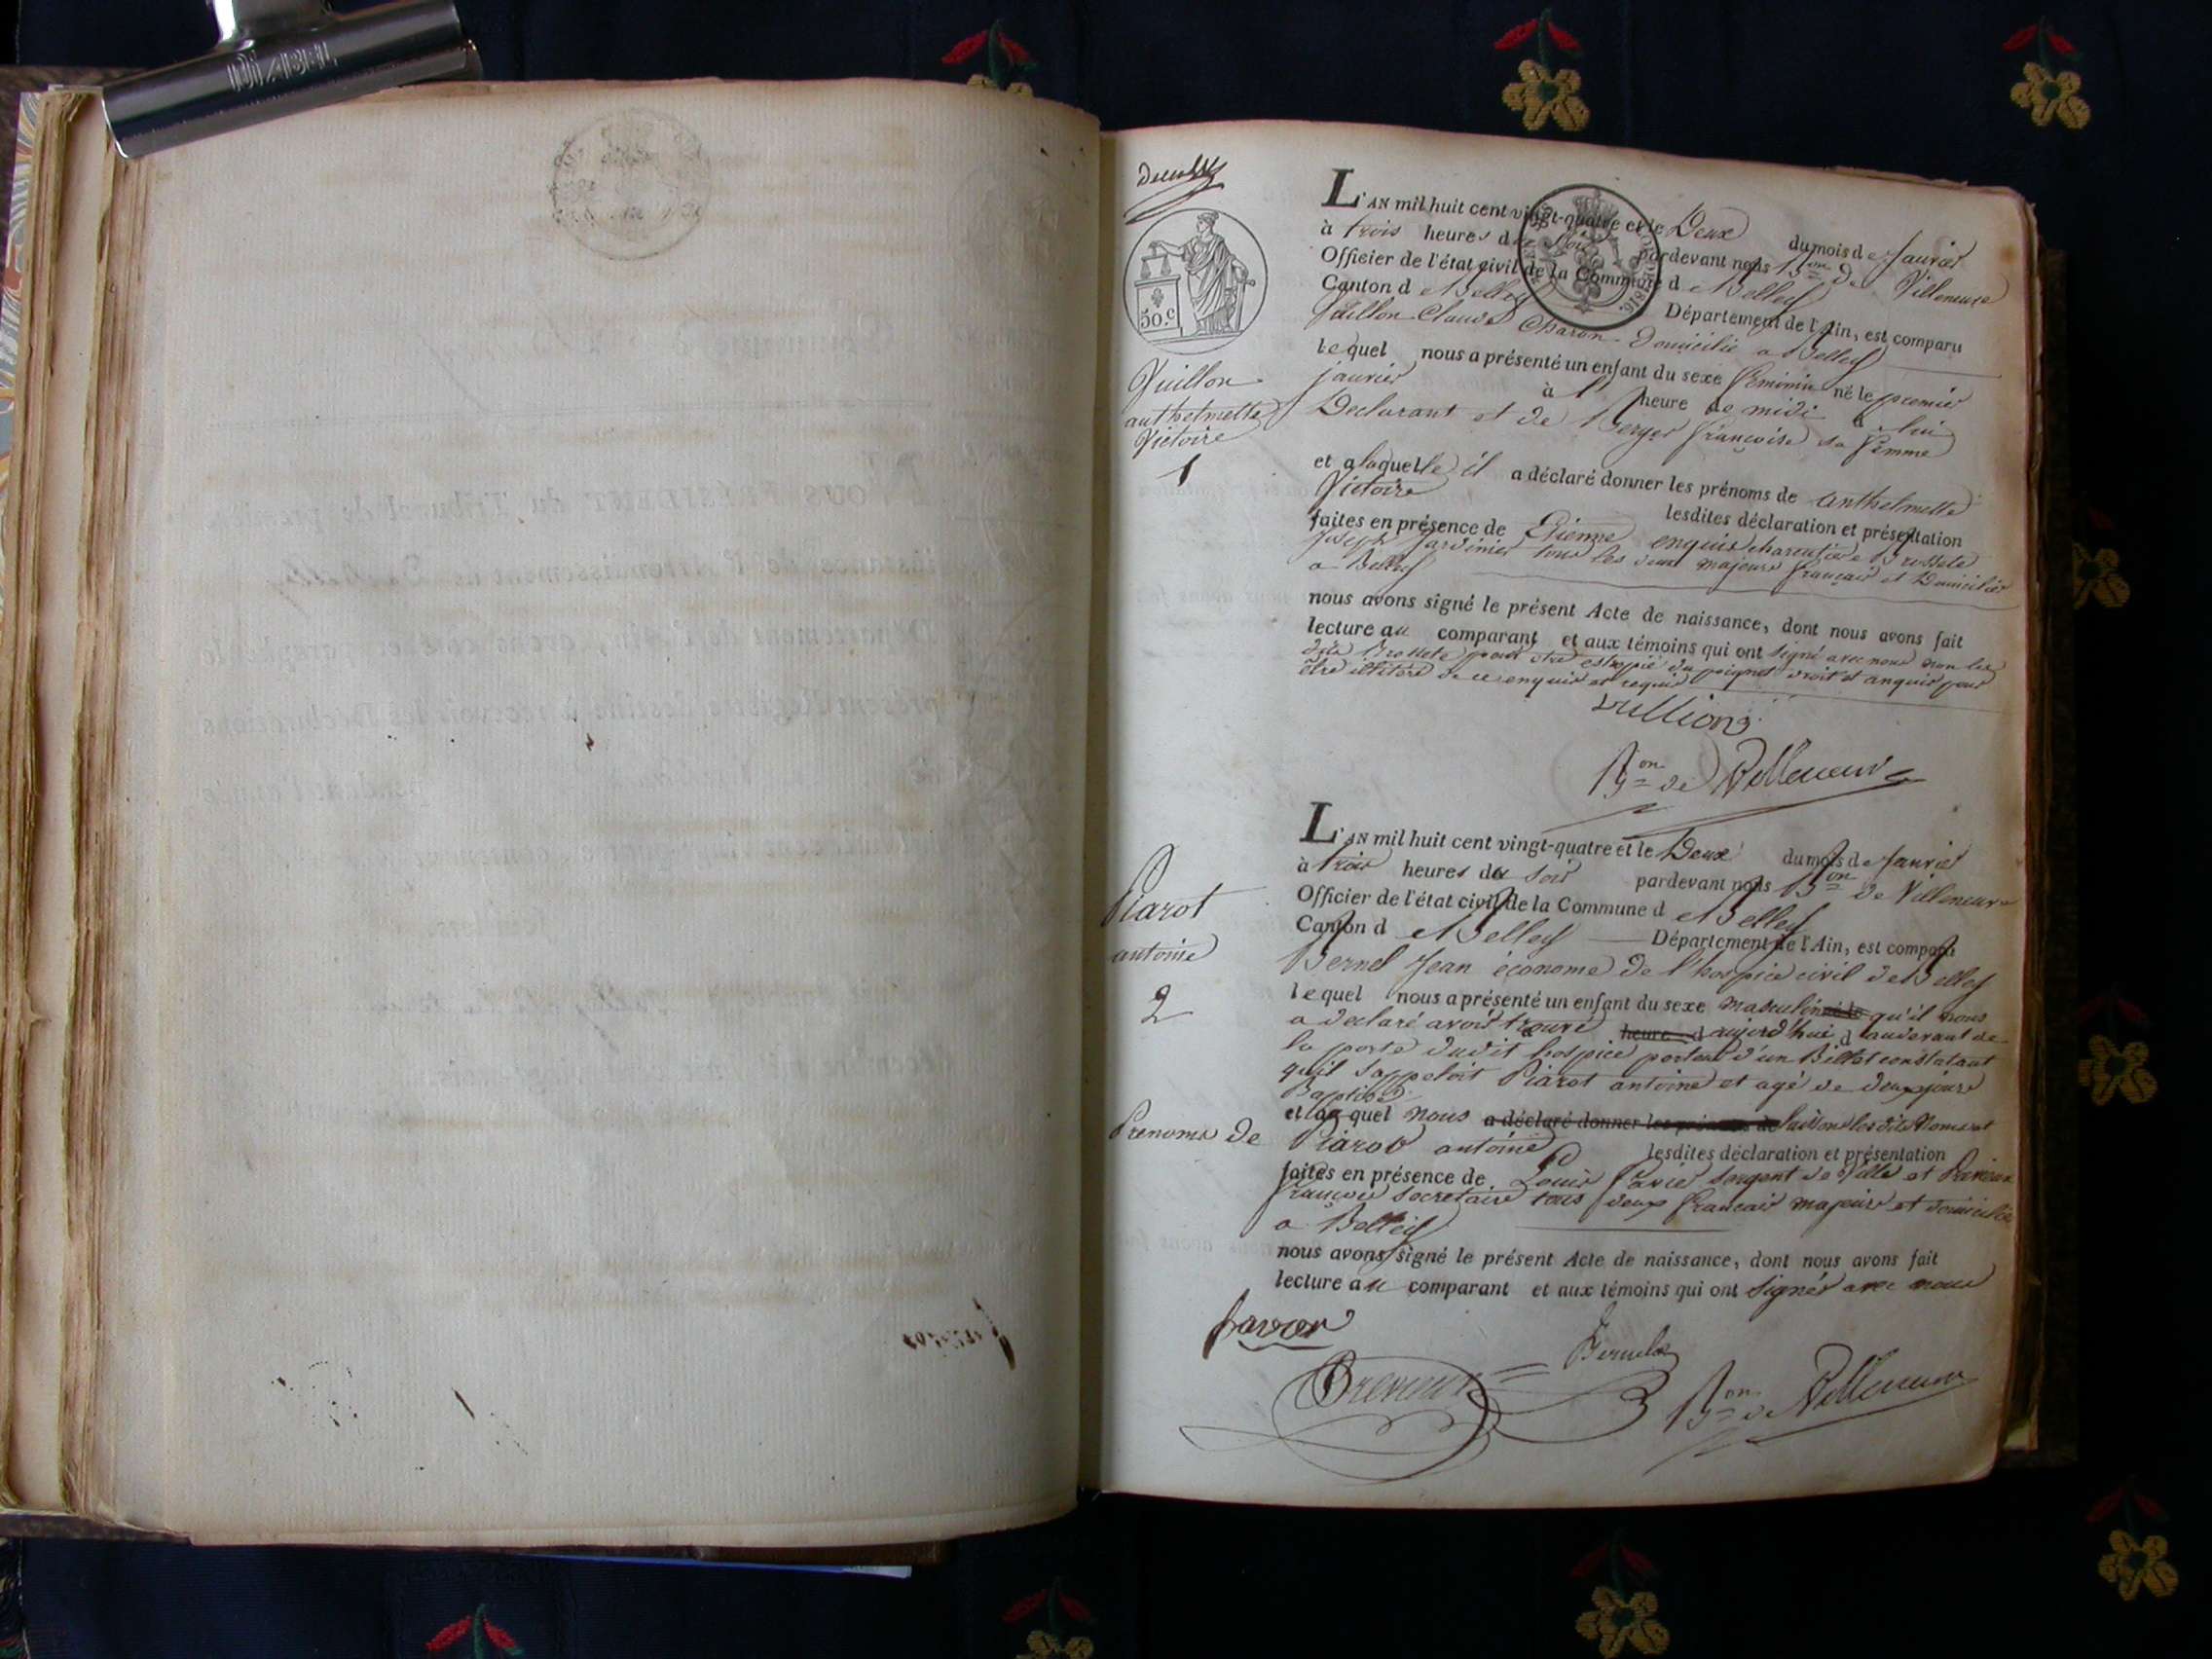 L'AN mil huit cent vingt-quatre et le Deux du mois de Janvier
à trois heures du Soir pardevant nous Bon de Villeneuve
Officier de l'état civil de la Commune de Belley
Canton de Belley Département de l'Ain, est comparu
Vuillon Claude Charon Domicilié a Belley
lequel nous a présenté un enfant du sexe féminin né le premier
janvier à l' heure de midi de lui
Declarant et de Berger françoise sa femme
et a laquelle il a déclaré donner les prénoms de anthelmette
Victoire lesdites déclaration et présentation
faites en présence de Etienne enquis Brossete
joseph jardinier tous les deux majeurs français et Domiciliés
a Belley
nous avons signé le présent Acte de naissance, dont nous avons fait
lecture au comparant et aux témoins qui ont signé avec nous non les
dits Brossete pour être estropié du poignet droit et anquis pour
être illitéré de ce enquis et requis
vullion
Bon de Villeneuve
50.c
Vuillon
anthelmette
Victoire
1
L'AN mil huit cent vingt-quatre et le Deux du mois de Janvier
à trois heures du Soir pardevant nous Bon de Villeneuve
Officier de l'état civil de la Commune de Belley
Canton de Belley Département de l'Ain, est comparu
Bernel Jean économe de l'hospice civil de Belley
lequel nous a présenté un enfant du sexe masculin né le qu'il nous
a declaré avoir trouvé heure d aujourd'hui audevant de
la porte dudit hospice porteur d'un Billet constatant
qu'il s'appeloit Piarot antoine et agé de deux jours
Baptisé
et au quel nous a déclaré donner les prénoms de laissons les dits Noms et
Prenoms de Piarot antoine lesdites déclaration et présentation
faites en présence de Louis Favier sergent de Ville et
françois secretaire tous deux français majeurs et domiciliés
a Belley
nous avons signé le présent Acte de naissance, dont nous avons fait
lecture au comparant et aux témoins qui ont signés avec nous
Piarot
antoine
2
favier
Bernel
Bon de Villeneuve